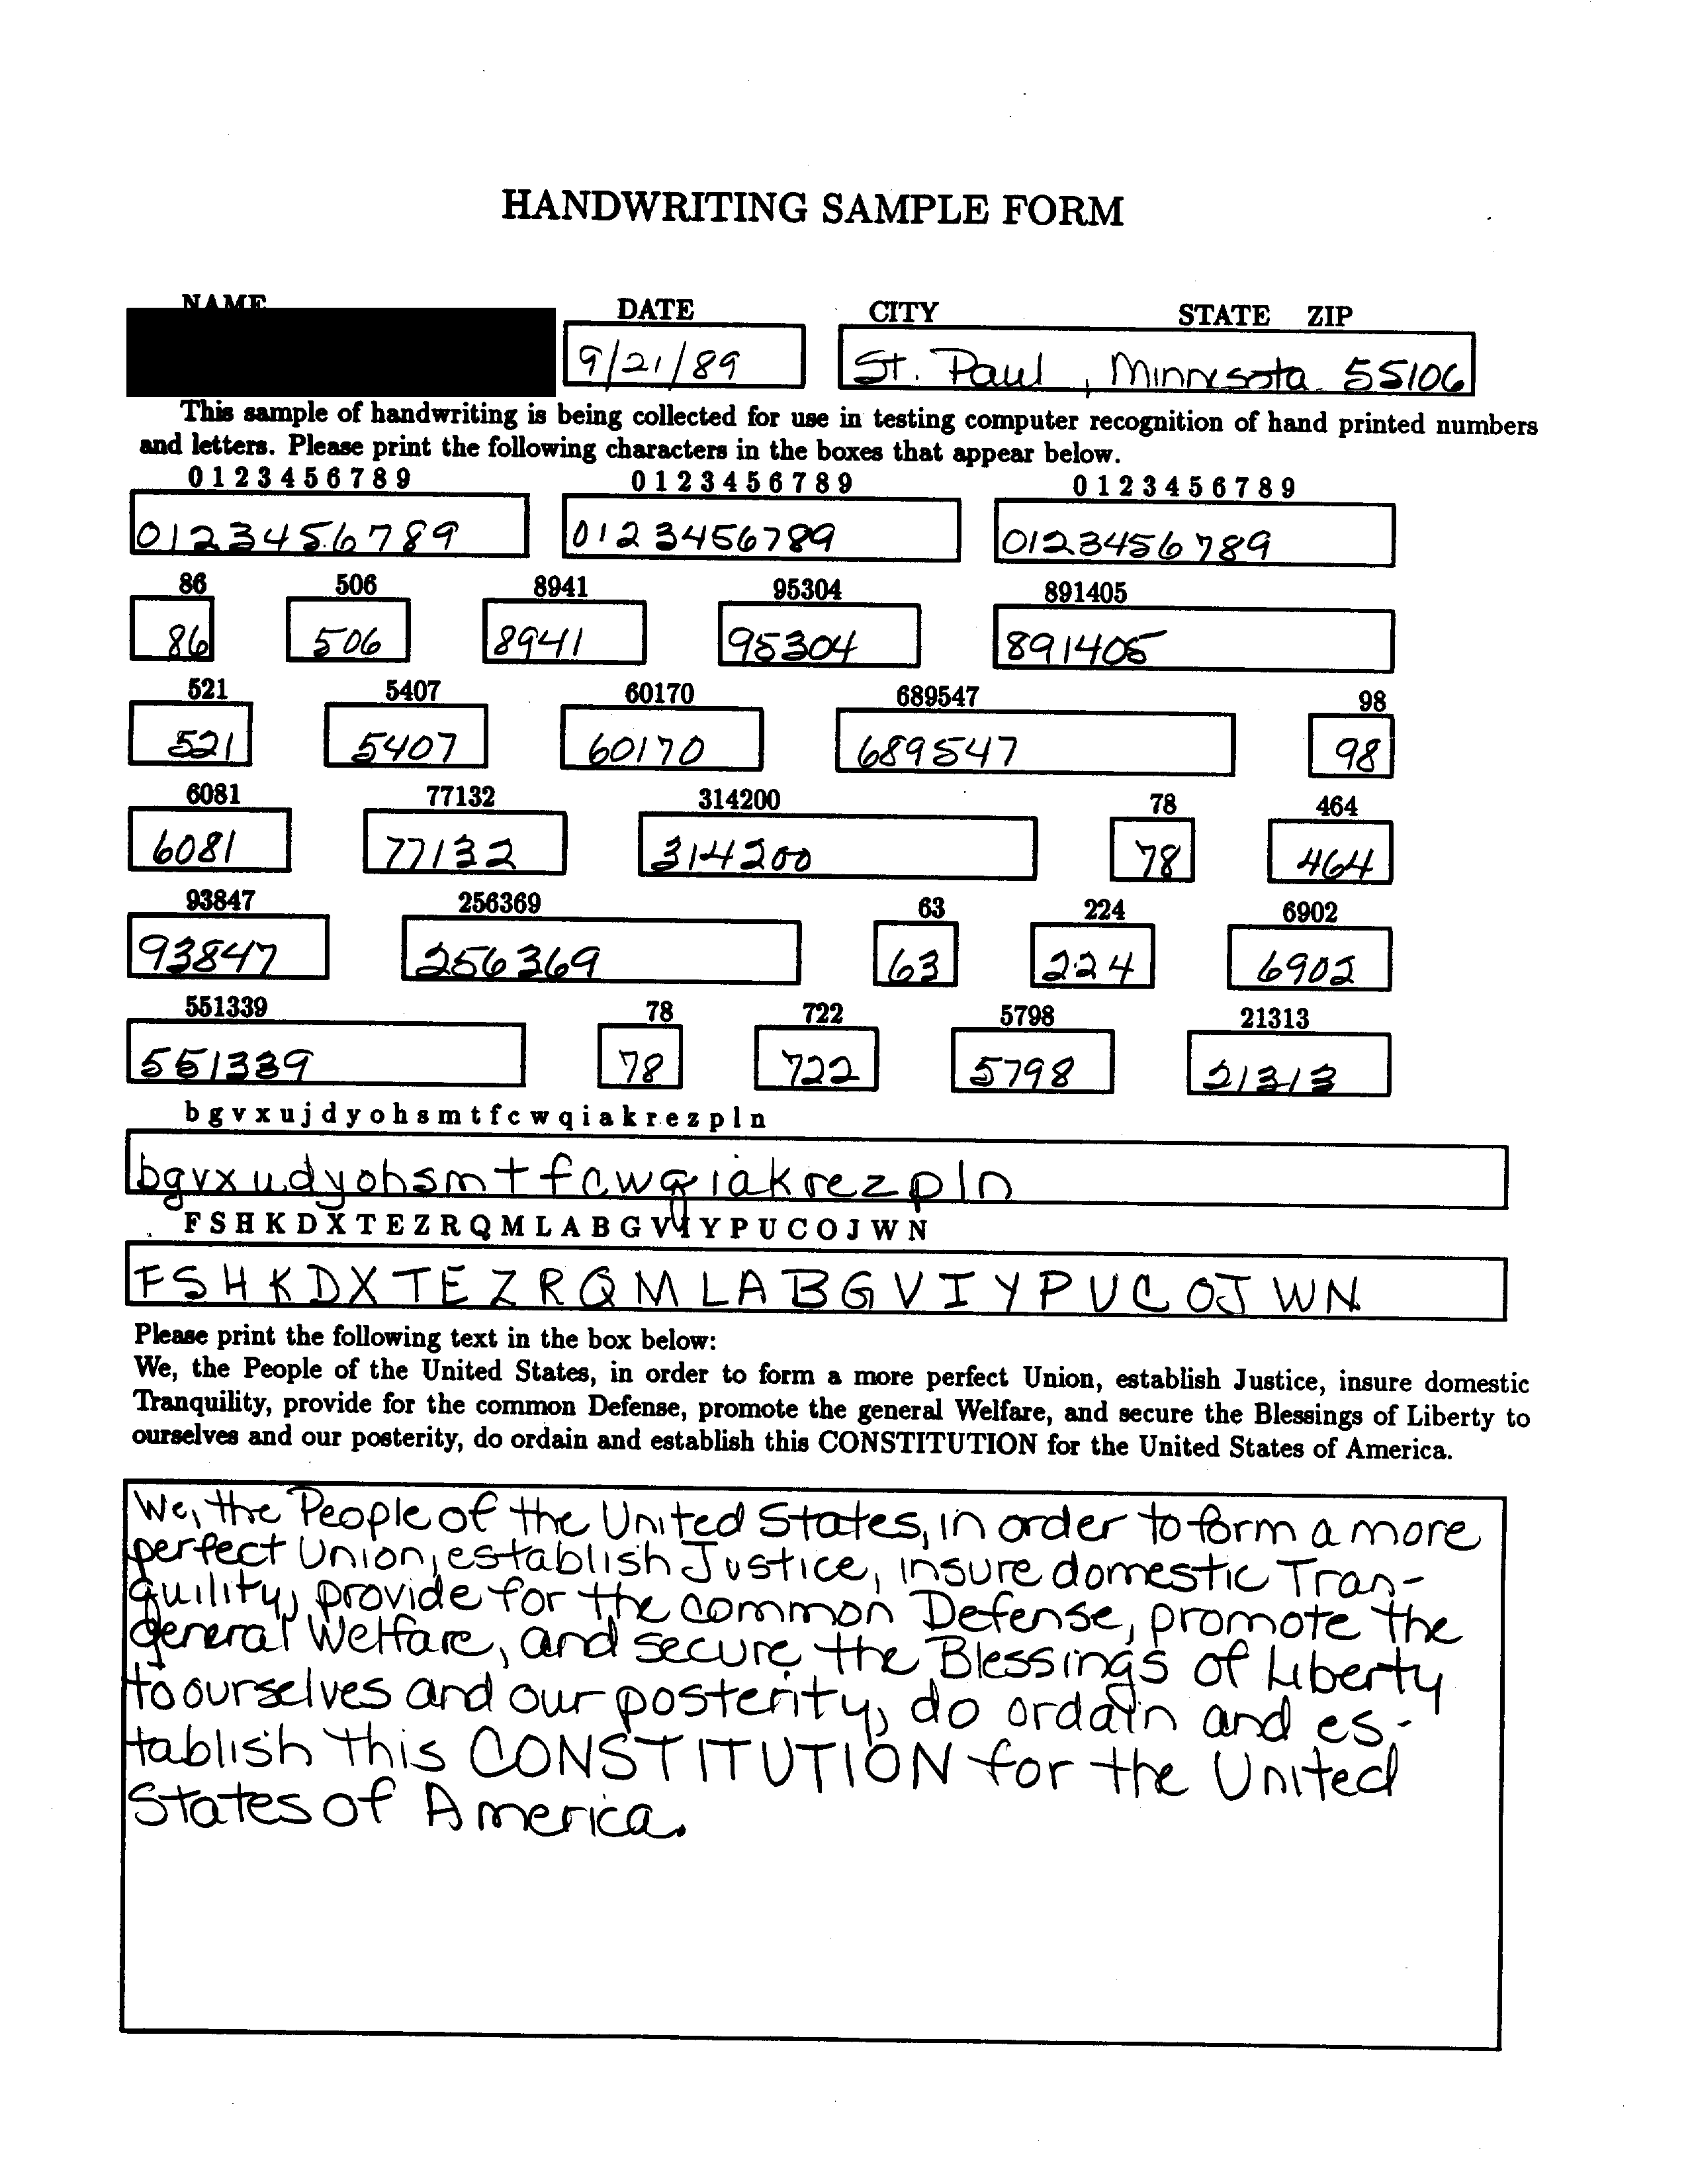 HANDWRITING SAMPLE FORM
NAME DATE CITY STATE ZIP
9/21/89 St. Paul, Minnesota 55106
This sample of handwriting is being collected for use in testing computer recognition of hand printed numbers
and letters. Please print the following characters in the boxes that appear below.
0 1 2 3 4 5 6 7 8 9 0 1 2 3 4 5 6 7 8 9 0 1 2 3 4 5 6 7 8 9
0123456789 0123456789 0123456789
86 506 8941 95304 891405
86 506 8941 95304 891405
521 5407 60170 689547 98
521 5407 60170 689547 98
6081 77132 314200 78 464
6081 77132 314200 78 464
93847 256369 63 224 6902
93847 256369 63 224 6902
551339 78 722 5798 21313
551339 78 722 5798 21313
b g v x u j d y o h s m t f c w q i a k r e z p l n
bgvxudyohsmtfcwqiakrezpln
F S H K D X T E Z R Q M L A B G V I Y P U C O J W N
FSHKDXTEZRQMLABGVIYPUCOJWN
Please print the following text in the box below:
We, the People of the United States, in order to form a more perfect Union, establish Justice, insure domestic
Tranquility, provide for the common Defense, promote the general Welfare, and secure the Blessings of Liberty to
ourselves and our posterity, do ordain and establish this CONSTITUTION for the United States of America.
We, the People of the United States, in order to form a more
perfect Union, establish Justice, insure domestic Tran-
quility, provide for the common Defense, promote the
general Welfare, and secure the Blessings of Liberty
to ourselves and our posterity, do ordain and es-
tablish this CONSTITUTION for the United
States of America.